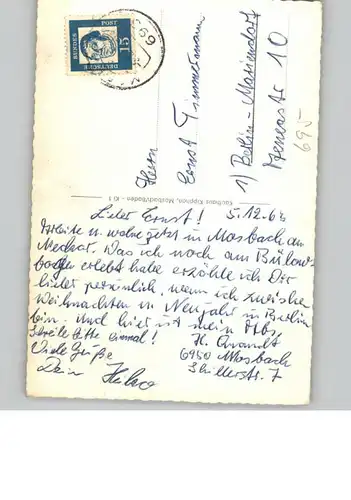 DEUTSCHE
BUNDES
POST
15
69
Herrn
Ernst Timmermann
1) Berlin - Mariendorf
10
695
Kaufhaus Kippnen, Mosbach/Baden - Ki 1
Lieber Ernst! 5.12.63
Arbeite u. wohne jetzt in Mosbach am
Neckar. Was ich noch am Bülow-
bogen erlebt habe erzähle ich Dir
lieber persönlich, wenn ich zwischen
Weihnachten u. Neujahr in Berlin
bin. Und hier ist mein Abs.
Schreibe bitte einmal! H. Quandt
Viele Grüße 6950 Mosbach
Dein Schillerstr. 7